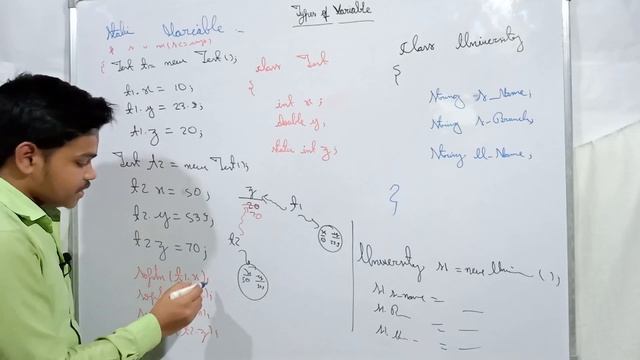 Types of Variable
Static Variable
{ Test t1 = new Test();
t1.x = 10;
t1.y = 23.9;
t1.z = 20;
Test t2 = new Test();
t2 x = 50;
t2.y = 53.9;
t2 z = 70;
sopln (t1.x);
class Test
{
int x;
double y,
static int z;
z
20
70
t1
t2
Class University
{
String s_Name,
String s-Branch,
String U-Name,
}
University s1 = new Uni ( );
s1 s-name =
s1
s1